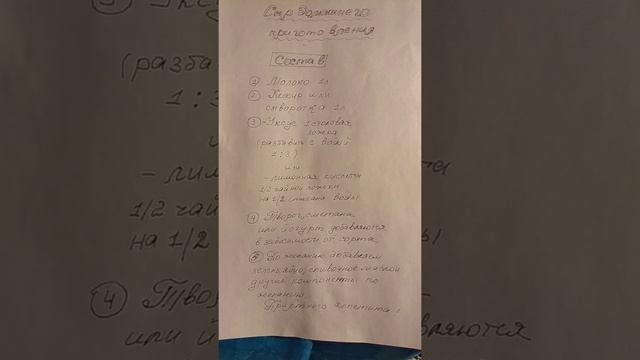 Сыр домашнего
приготовления
Состав
① Молоко 1л
② Кефир или
сыворотка 1л
③ - Уксус 1 столовая
ложка
(разбавить с водой
1:3)
или
- лимонная кислота
1/2 чайной ложки
на 1/2 стакана воды
④ Творог, сметана
или йогурт добавляются
в зависимости от сорта
⑤ По желанию добавляем
зелень, яйцо, сливочное масло и
другие компоненты по
желанию
Приятного аппетита!